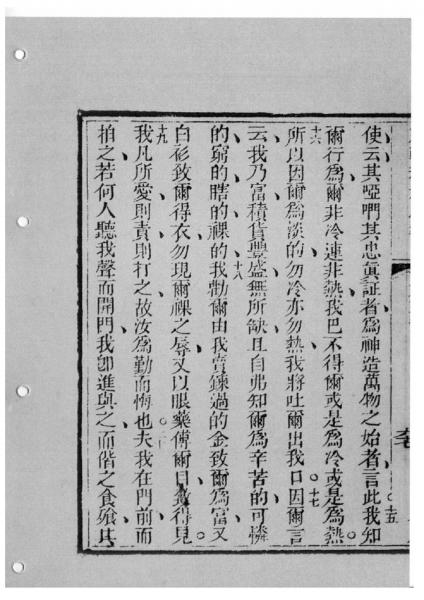 使云其啞們其忠眞証者爲神造萬物之始者言此我知
十五
爾行爲爾非冷連非熱我巴不得爾或是爲冷或是爲熱
十六
所以因爾爲淡的勿冷亦勿熱我將吐爾出我口因爾言
十七
云我乃富積貨豐盛無所缺且自弗知爾爲辛苦的可憐
的窮的瞎的裸的我勸爾由我賣鍊過的金致爾爲富又
十八
白衫致爾得衣勿現爾裸之辱又以眼藥傅爾目致得見
十九
我凡所愛則責則打之故汝爲勤而悔也夫我在門前而
二十
拍之若何人聽我聲而開門我卽進與之而偕之食飱其